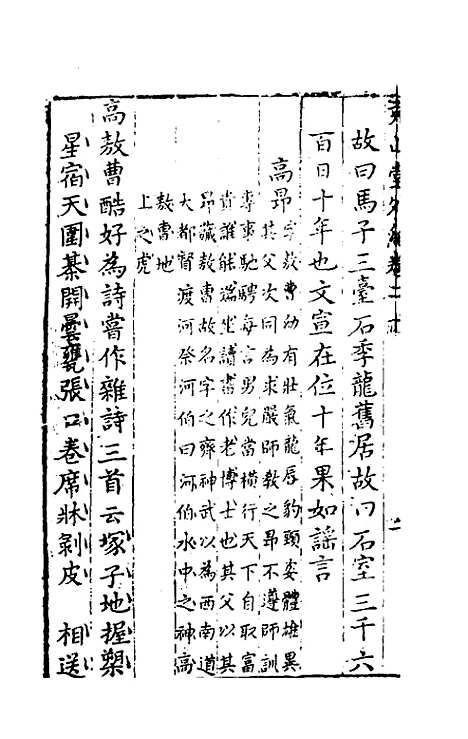 堯山堂外紀卷二十 二
故曰馬子三臺石季龍舊居故曰石室三千六
百日十年也文宣在位十年果如謡言
高昻
字敖曹幼有壯氣龍唇豹頭姿體雄異
其父次同為求嚴師教之昻不遵師訓
專事馳騁每言男兒當横行天下自取富
貴誰能端坐讀書作老博士也其父以其
昻藏敖曹故名字之齊神武以為西南道
大都督渡河祭河伯曰河伯水中之神高
敖曹地
上之虎
高敖曹酷好為詩嘗作雜詩三首云塚子地握槊
星宿天圍棊開曇甕張口卷席牀剝皮 相送